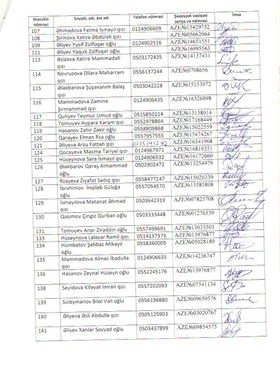 Mənzilin nömrəsi Soyadı, adı, ata adı Telefon nömrəsi Şəxsiyyət vəsiqəsi seriya və nömrəsi İmza
107 Əhmədova Fatma İsmayıl qızı 0124909611 AZE№15429752
108 Şirinova Xatirə Əbdüləli qızı AZE№05662064
109 Əliyev Yusif Zülfüqar oğlu 0124902516 AZE№14651551
111 Əliyev Yaqub Zülfüqar oğlu AZE№16995563
113 Əzizova Xatirə Məmmədəli qızı 0503172435 AZE№14137431
114 Novruzova Dilarə Məhərrəm qızı 0556137244 AZE№0708656
115 Ələkbərova Şüşəxanım Balaş qızı 0503042228 AZE№15153072
116 Məmmədova Zəminə Şirməmməd qızı 0124906435 AZE№16326998
117 Quliyev Teymur Umud oğlu 0515850014 AZE№13158014
118 Tomuyev Aypara Kərəm qızı 0552978864 AZE№17168449
119 Həsənov Zahir Zakir oğlu 0558809866 AZE№02029150
120 Qarayev Elman Rza oğlu 0557957555 AZE№15474267
121 Əliyeva Arzu Fəttah qızı AZE№16341968
122 Qocayeva Məsmə Tariyel qızı 0124967971 AZE№16891335
125 Hüseynova Sara İsmayıl qızı 0124906532 AZE№16172660
126 Ələkbərov Qaraş Alməmməd oğlu 0502902473 AZE№13254979
127 Rzayeva Ziyafət Sadıq qızı 0558477247 AZE№15020339
128 İbrahimov İnqilab Güləğa oğlu 0557054570 AZE№13585808
129 İsmayılova Mətanət Əhməd qızı 0503642319 AZE№07825708
130 Qasımov Çingiz Qurban oğlu 0503333448 AZE№01276539
132 Tomuyev Anar Əzəddin oğlu 0559799691 AZE№13033503
133 Hüseynova Lalazar Rəmil qızı 0514371378 AZE№13976877
134 Hümbətov Şahbaz Mikayıl oğlu 0558360005 AZE№05028189
135 Məmmədova Almaz İbadulla qızı 0124906635 AZE№14236747
136 Həsənov Zeynal Hüseyn oğlu 0552245176 AZE№13976877
138 Seyidova Kifayət İmran qızı 0557202093 AZE№07541134
139 Süleymanov Bilal Vəli oğlu 0556196880 AZE№09650576
140 Əliyeva Əsli Abdulla qızı 0505125903 AZE№03020767
141 Əliyev Xanlar Səyyad oğlu 0503437899 AZE№09854575